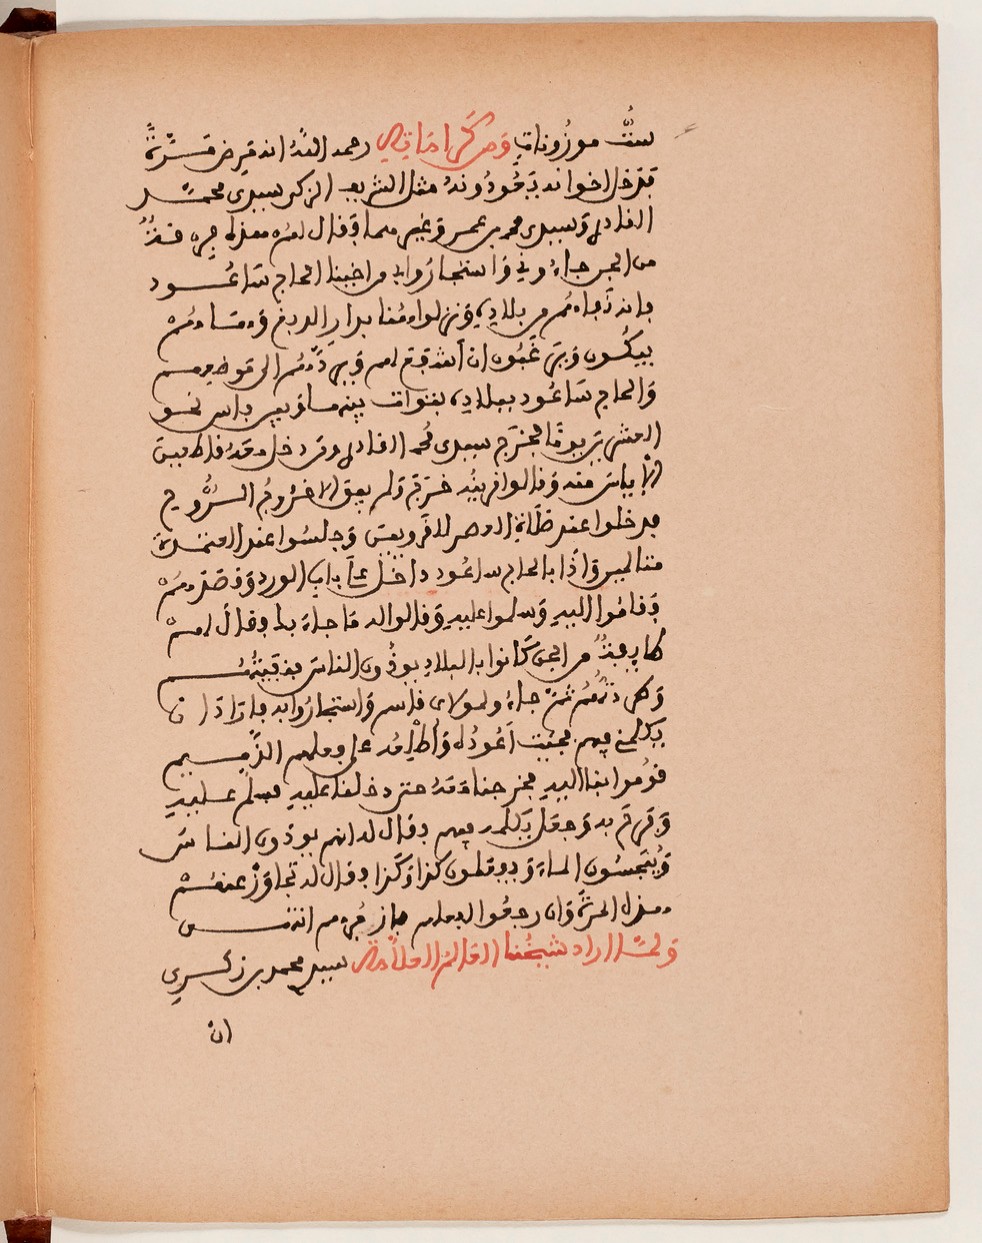 ستُّ موزُونات وَمن كَرَامَاتِهِ رحمه اللهُ انه مَرِضَ مَرَّةً
فدخل اخوانه يَعُودُونهُ مثل الشريف الزكي سيدى محمد
القادرى وَسيدى محمد بن عمر وَغيرهما فقال لهمْ هذه
من الجن جاءُونِي وَاستجارُوا بى من اخينا الحاج سَاعُود
بانه نَفاهُم من بلادِهِ وَنزلوا هُنا بدار الدبغ وَنساءهُمْ
يبكُون وَيرغبُون ان أشفع لهم وَيردّهُم الى موضعهم
وَالحاج سَاعُود ببلادِهِ بينها وَبين فاس نحو
العشرين يومًا فخرَج سيدى محمد القادرى وَمن دخل معهُ قاطعين
الاياسَ منه وَقالوا فريبُه خَرِفَ وَلم يبق الا خرُوجُ الرُّوح
فدخلوا عند صَلَاة العصر للقرويين وَجلسُوا عند العنزة
هنالك وَاذا بالحاج ساعُود داخل على باب الورد وَقصدهمْ
فقامُوا اليهِ وَسلموا عليهِ وَقالوا له مَا جاءَ بك فقال لهمْ
طايفةٌ من الجن كَانوا بالبلاد يوذُون الناسَ فنفيتُهُم
وَطردتُهُمْ ثمّ جاءُوا لمولاى قاسم وَاستجارُوا به فارَادَ ان
يكلمنى فيهم فجئت أعُودُه وَأطْلِعُه على فعلهم الذَّميم
قومُوا بنا اليهِ فخرجنا معهُ حتى دخلنا عليهِ فسلّم عليهِ
وَفرِحَ به وَجعل يكلمه فيهم فقال له انهم يوذُون الناسَ
وَيُنَجسُون الماءَ وَيفعلون كذا وَكذا فقال له تجاوَزْ عنهُمْ
هذه المرة وَان رجعُوا لفعلهم انتهى
وَلمّا اراد شيخُنا العَالمُ العلاّمة سيدى محمد بن زكري
ان